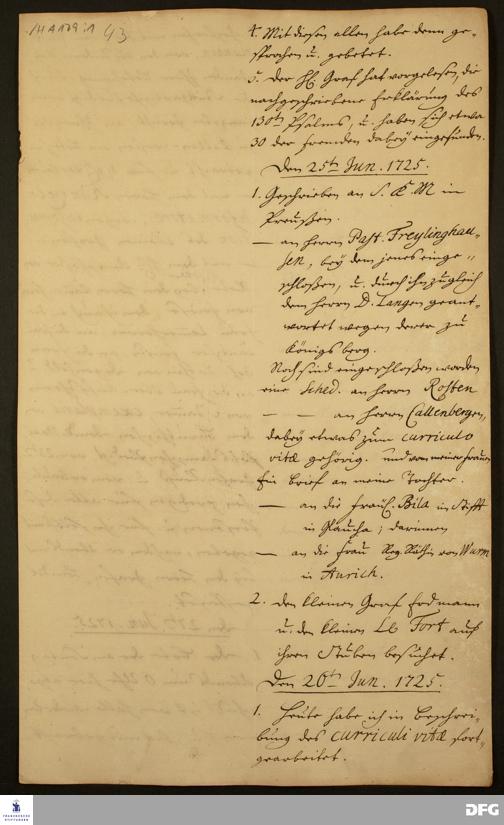 43
4. Mit diesen allen habe denn ge-
sprochen u. gebetet.
5. Der H. Graf hat vorgelesen, die
nachgeschriebene Erklärung des
130th Psalms, u. haben sich etwa
30 der fremden dabey eingefunden.
Den 25th Jun. 1725.
1. Geschrieben an S. K. M in
Preußen.
— an Herrn Past. Freylinghau-
sen, bey dem jenes einge-
schloßen, u. durch ihn zugleich
dem Herrn D. Langen geant-
wortet wegen derer zu
Königsberg.
Noch sind eingeschloßen worden
eine Sched. an Herrn Rosten
— — an Herrn Callenbergen,
dabey etwas zum curriculo
vitæ gehörig. und von meiner Frauen
Ein Brief an meine Tochter.
— an die Fräul. Bila in Stifft
in Glaucha; darinnen
— an die Frau Reg. Räthin von Wurm
in Aurich.
2. den kleinen Graf Erdmann
u. den kleinen Le Fort auf
ihren Stuben besuchet.
Den 26th Jun. 1725.
1. Heute habe ich in Beschrei-
bung des curriculi vitæ fort-
gearbeitet.
FRANCKESCHE
STIFTUNGEN
DFG